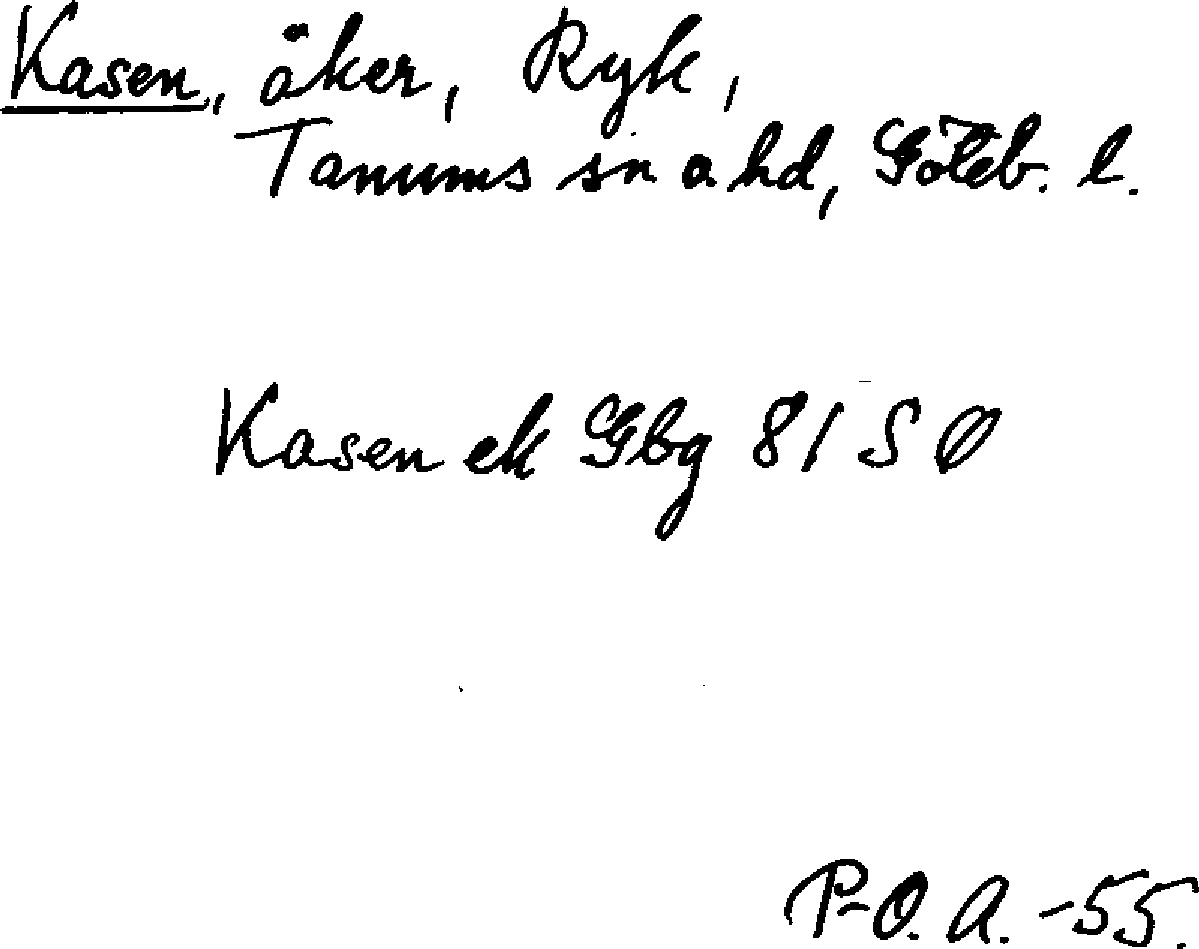 Kasen, åker, Ryk,
Tanums sn o hd, Göteb. l.
Kasen ek Gbg 81 S Ø
P-O. A. -55.